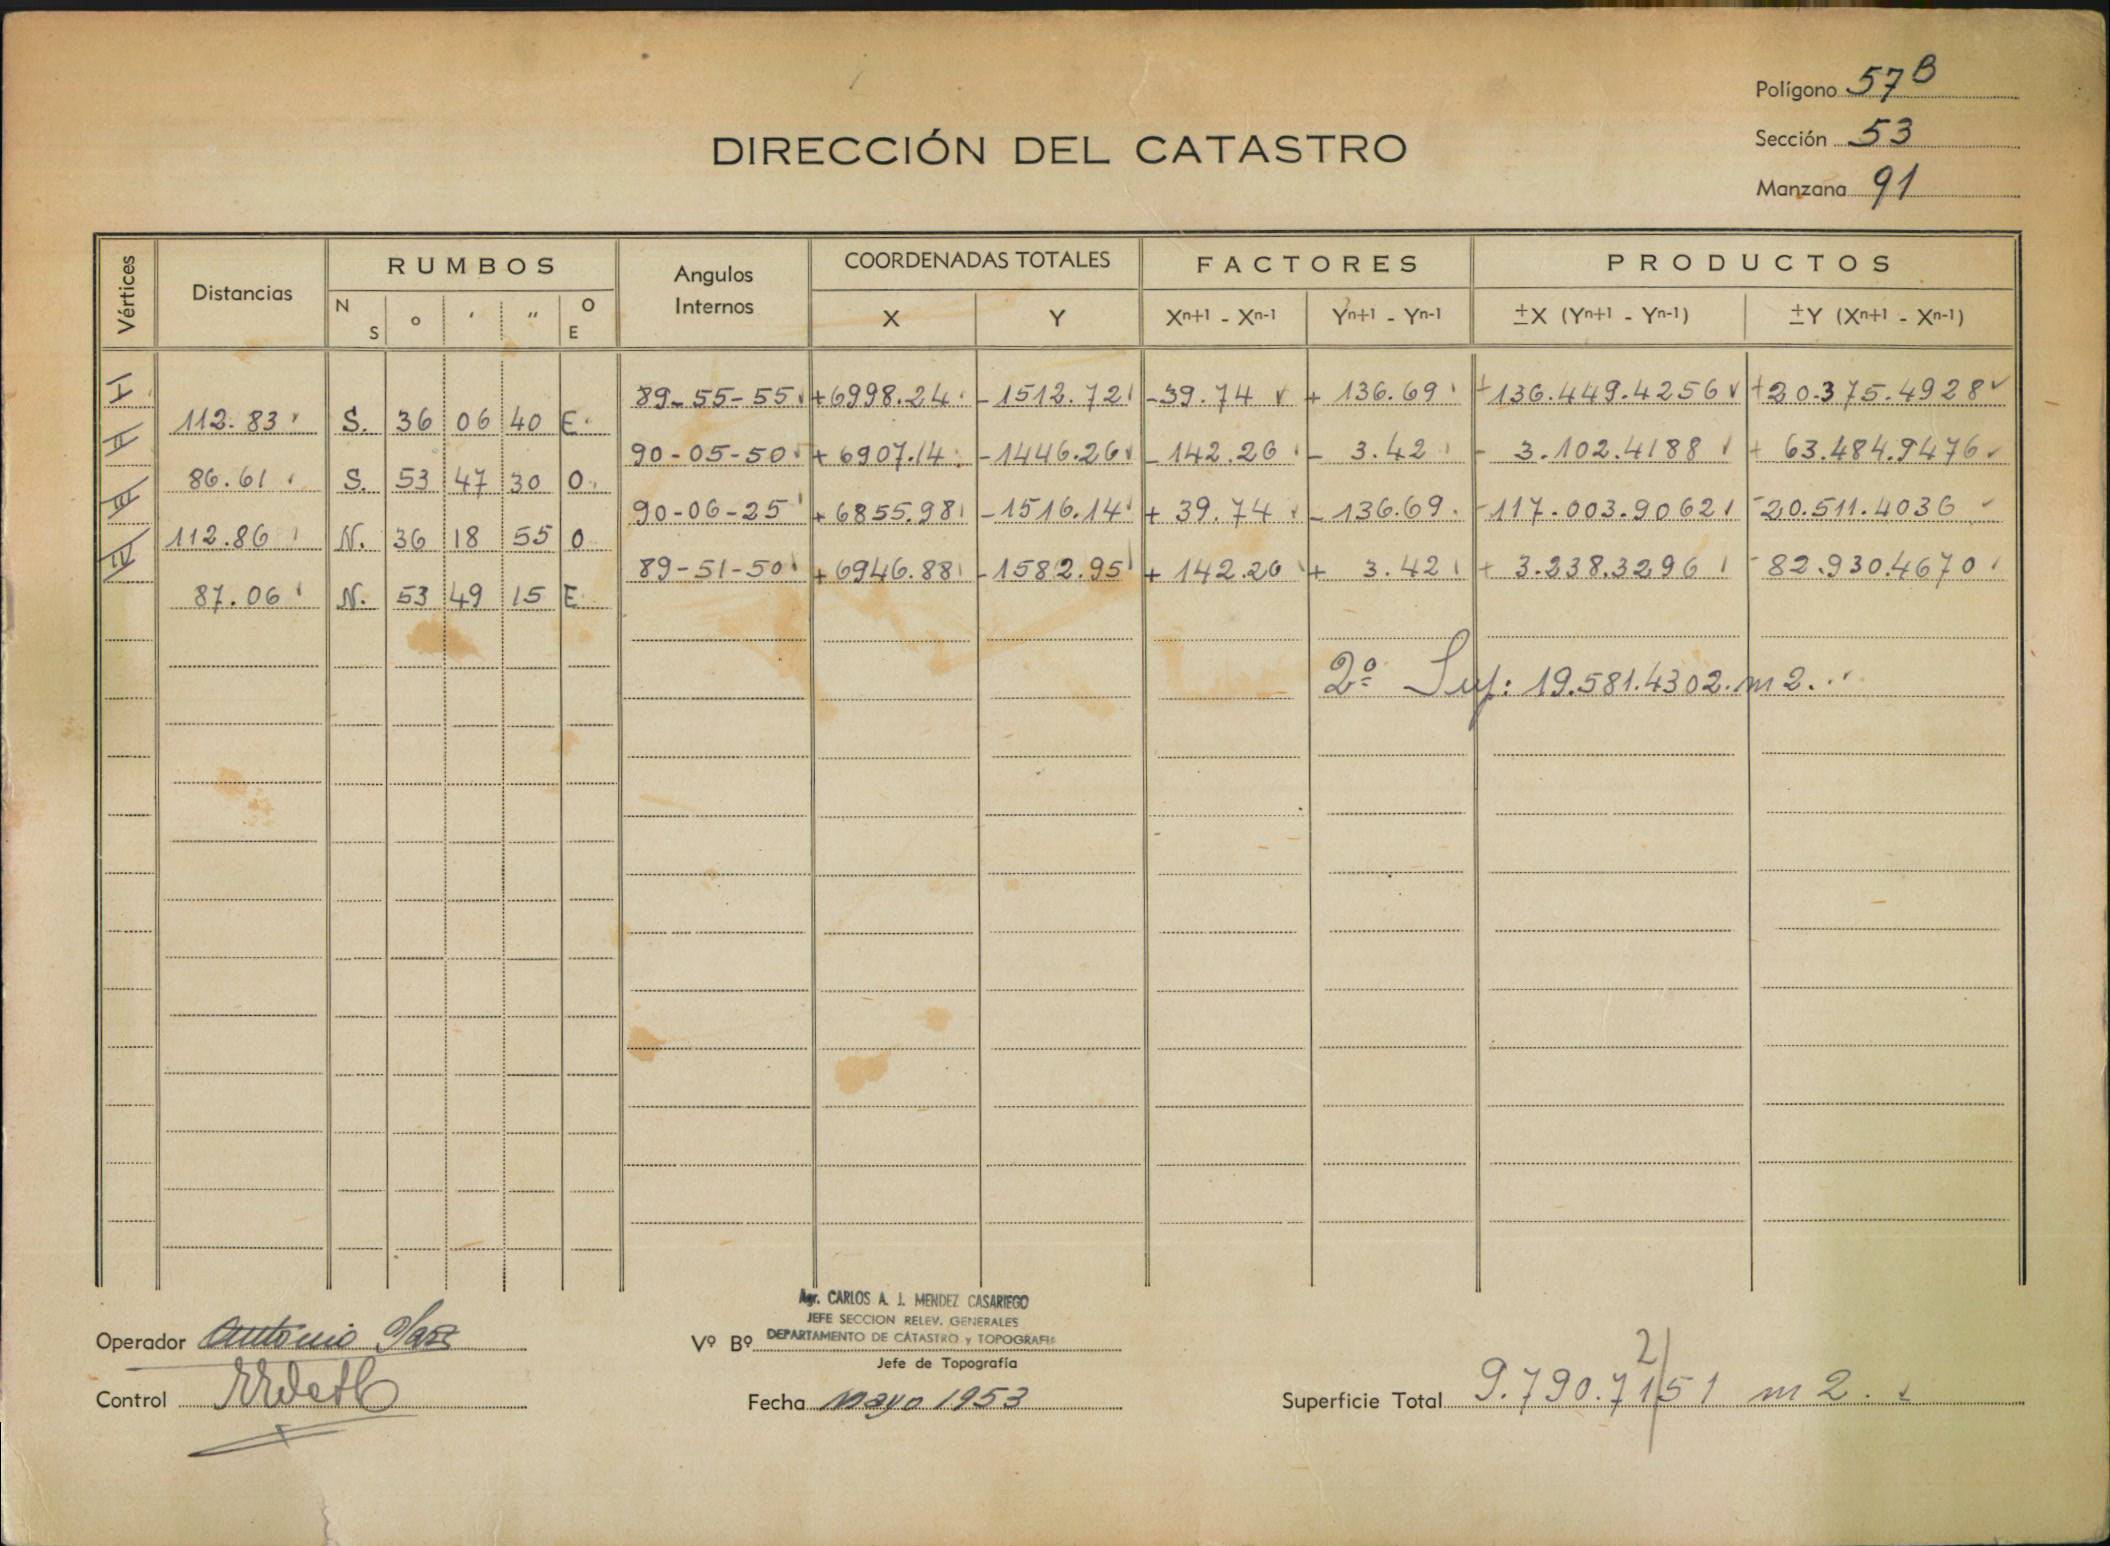 Polígono 57 B
Sección 53
Manzana 91
DIRECCIÓN DEL CATASTRO
Vértices Distancias RUMBOS Angulos Internos COORDENADAS TOTALES FACTORES PRODUCTOS
N S ° ' " O E X Y Xn+1 - Xn-1 Yn+1 - Yn-1 ±X (Yn+1 - Yn-1) ±Y (Xn+1 - Xn-1)
I 89-55-55 +6998.24 -1512.72 -39.74 + 136.69 +136.449.4256 +20.375.4928
112.83 S. 36 06 40 E.
II 90-05-50 + 6907.14 -1446.26 -142.26 - 3.42 - 3.102.4188 + 63.484.9476
86.61 S. 53 47 30 O.
III 90-06-25 + 6855.98 -1516.14 + 39.74 -136.69 -117.003.9062 -20.511.4036
112.86 N. 36 18 55 O
IV 89-51-50 + 6946.88 -1582.95 + 142.26 + 3.42 + 3.238.3296 -82.930.4670
87.06 N. 53 49 15 E
2º Sup: 19.581.4302. m2.
Operador Antonio
Control
Agr. CARLOS A. J. MENDEZ CASARIEGO
JEFE SECCION RELEV. GENERALES
Vº Bº DEPARTAMENTO DE CATASTRO y TOPOGRAFIA
Jefe de Topografía
Fecha Mayo 1953
2
Superficie Total 9.790.7151 m2.